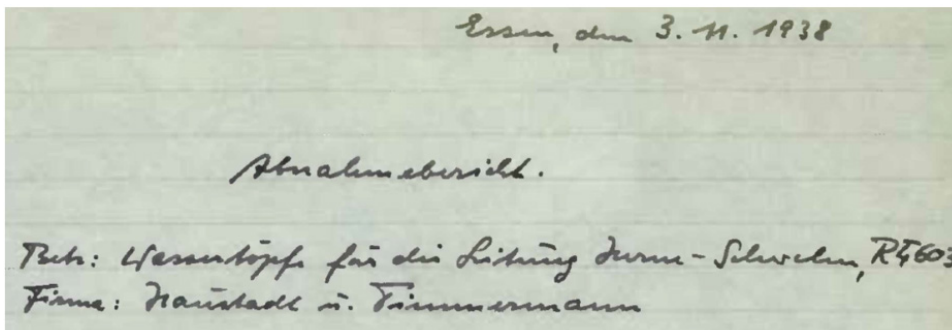 Essen, den 3. 11. 1938
Abnahmebericht.
Betr: Wassertöpfe für die Leitung - Schwelm,
Firma: Neustadt u. Timmermann